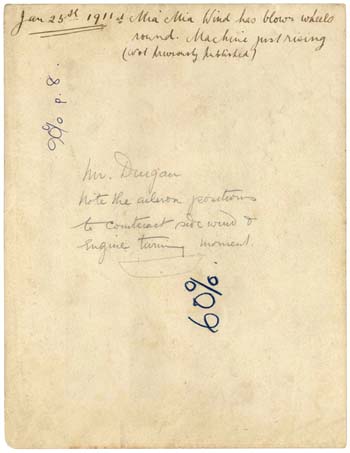 Jan 25th 1911 at Mia Mia Wind has blown wheels
round. Machine just rising
(not previously published)
90% p. 8.
Mr. Duigan
Note the aileron positions
to counteract side wind &
engine turning moment.
60%